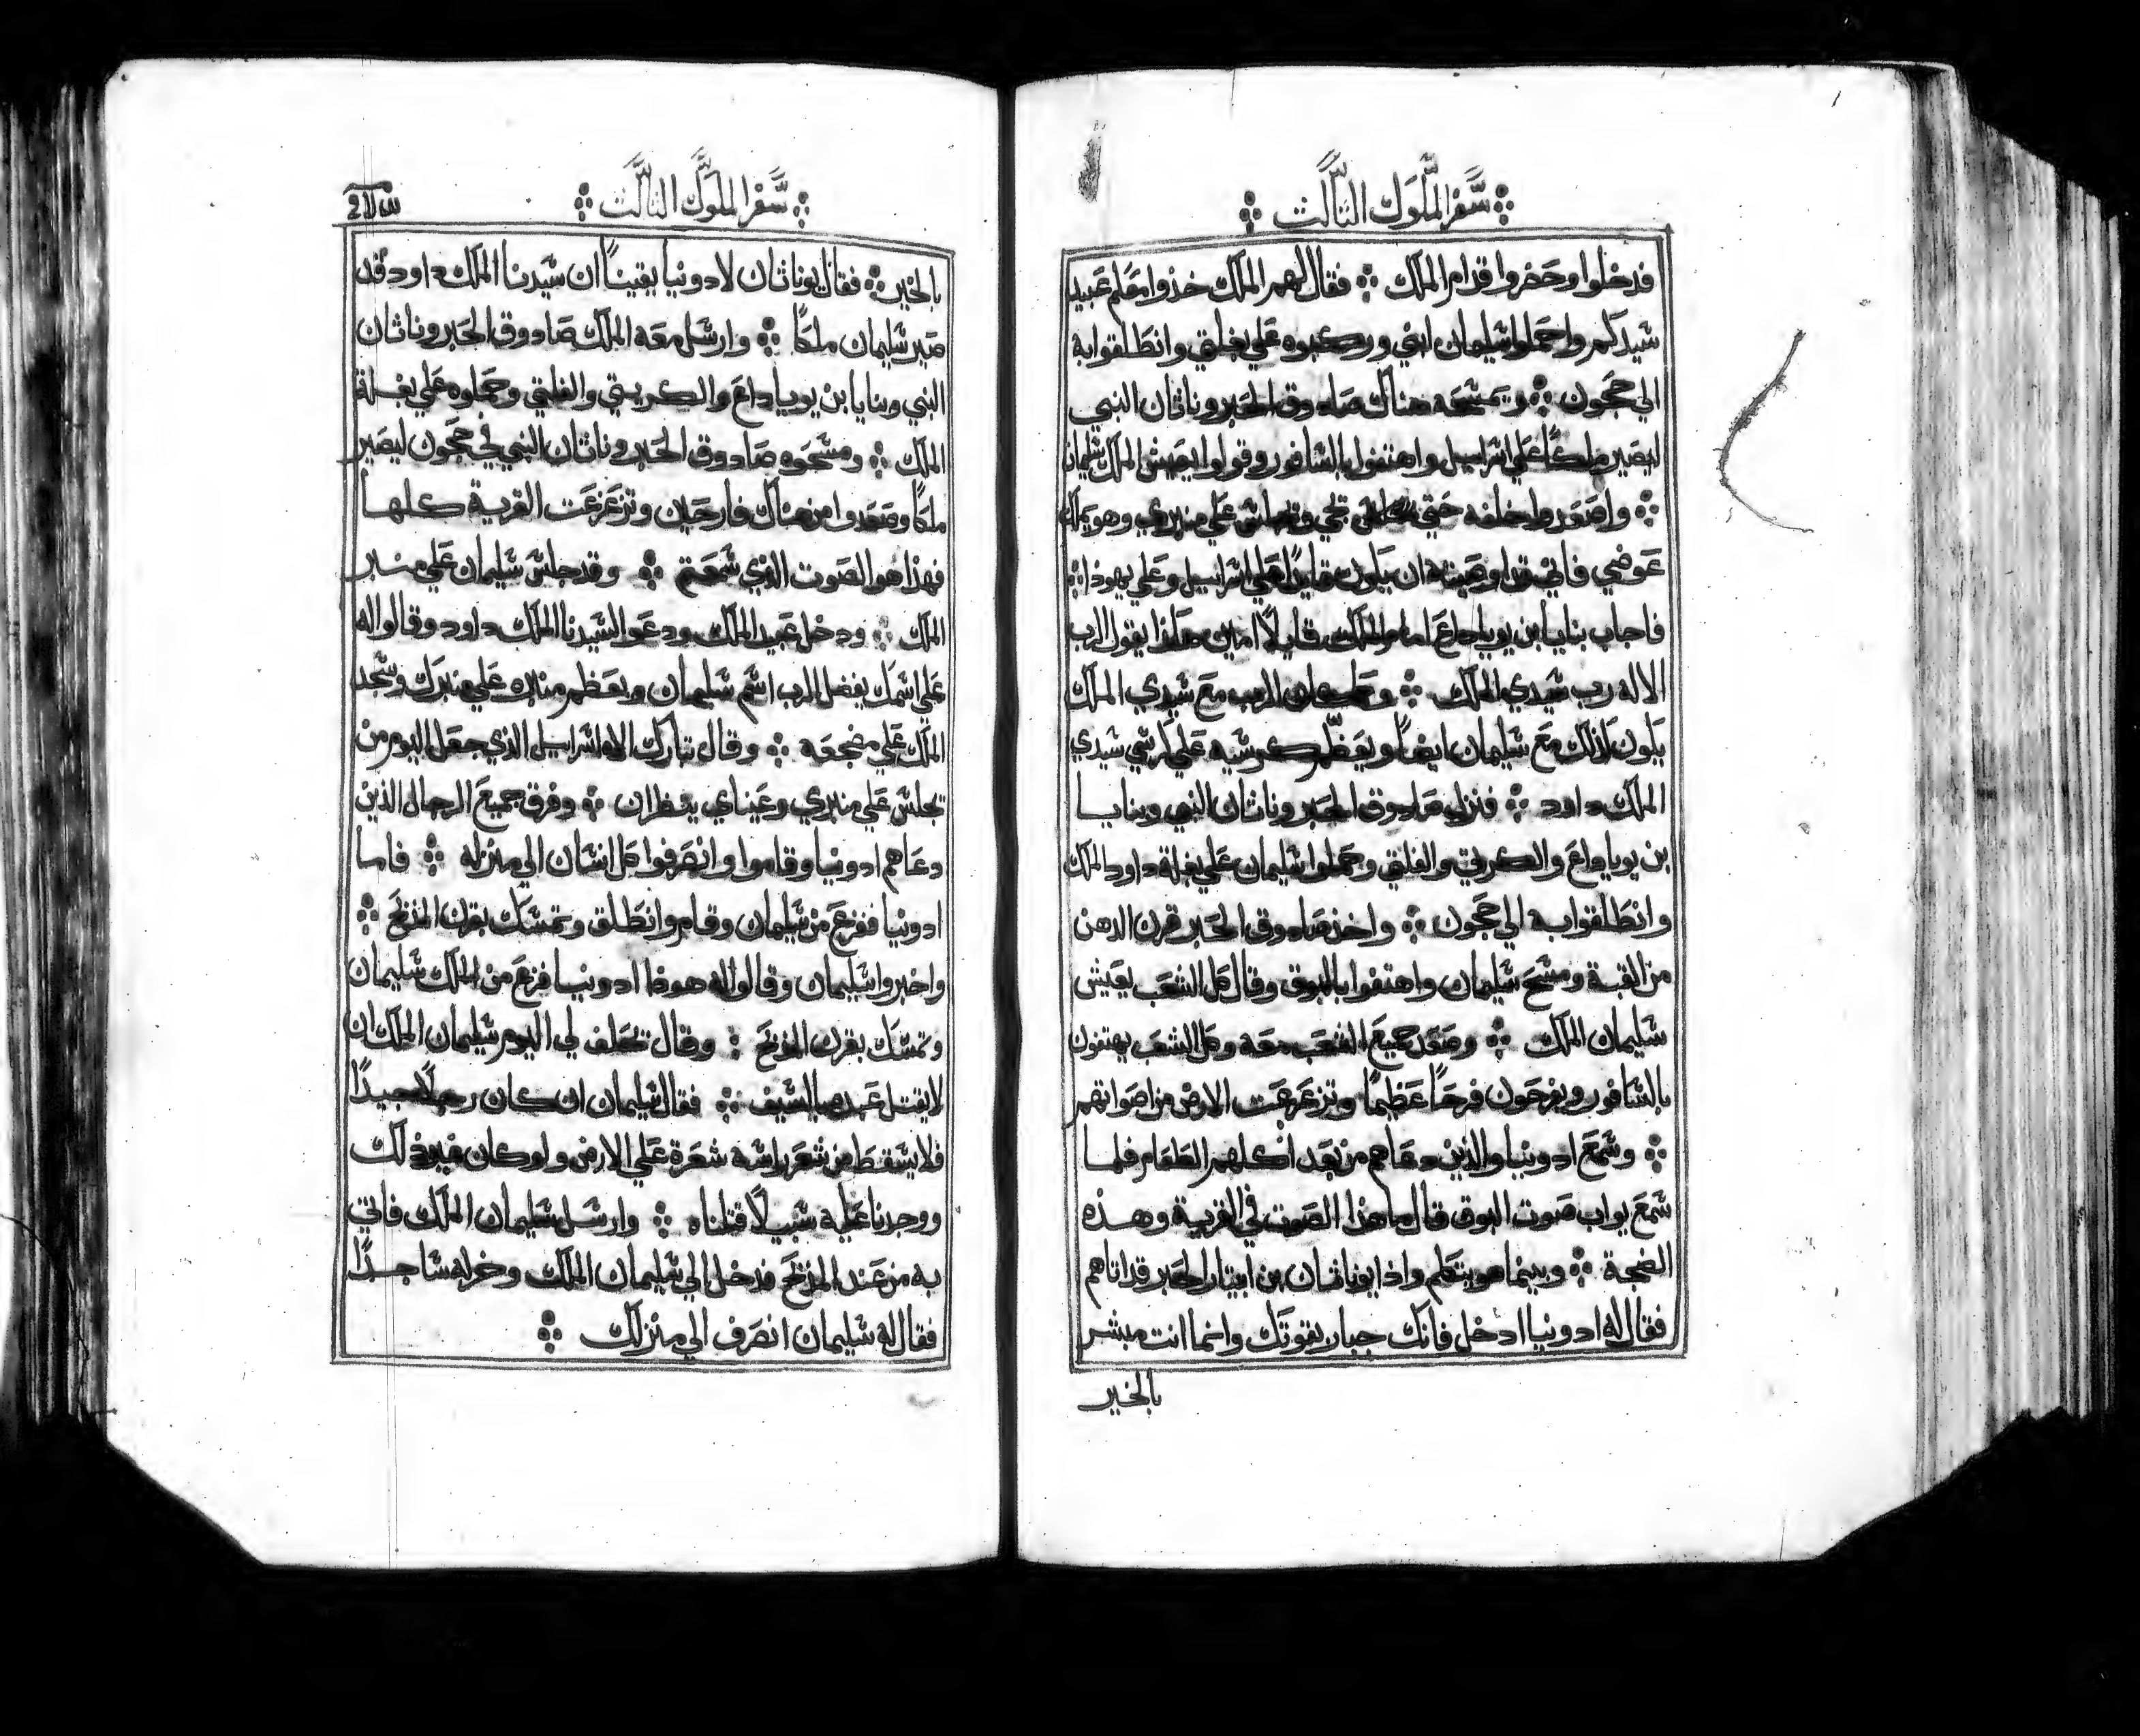 سفر الملوك الثالث
فدخلوا وحضروا قدام الملك فقال لهم الملك خذوا معكم عبيد
سيدكم واحملوا سليمان ابني وركبوه علي بغلتي وانطلقوا به
الي جحون ويمسحه هناك صادوق الحبر وناثان النبي
ليصير ملكًا علي اسراييل واهتفوا بالسافور وقولوا يعيش الملك سليمان
واصعدوا خلفه حتي يجي ويجلس علي منبري وهو يملك
عوضي فاني قد اوصيته ان يكون قايدًا علي اسراييل وعلي يهوذا
فاجاب بنايا ابن يوياداع امام الملك قايلًا امين هكذا يقول الرب
الاله رب سيدي الملك وكما كان الرب مع سيدي الملك
يكون كذلك مع سليمان ايضًا ويعظم كرسيه علي كرسي سيدي
الملك داود فنزل صادوق الحبر وناثان النبي وبنايا
بن يوياداع والكريتي والفلتي وحملوا سليمان علي بغلة داود الملك
وانطلقوا به الي جحون واخذ صادوق الحبر قرن الدهن
من القبة ومسح سليمان واهتفوا بالبوق وقال كل الشعب يعيش
سليمان الملك وصعد جميع الشعب معه وكل الشعب يهتفون
بالسافور ويفرحون فرحًا عظيمًا وتزعزعت الارض من اصواتهم
وسمع ادونيا والذين دعاهم من بعد اكلهم الطعام فلما
سمع يواب صوت البوق قال ما هذا الصوت في القرية وهذه
الضجة وبينما هو يتكلم واذا يوناثان بن ابيتار الحبر قد اتاهم
فقال له ادونيا ادخل فانك جبار بقوتك وانما انت مبشر
بالخير
سفر الملوك الثالث
بالخير فقال يوناثان لادونيا يقينًا ان سيدنا الملك داود قد
صير سليمان ملكًا وارسل معه الملك صادوق الحبر وناثان
النبي وبنايا ابن يوياداع والكريتي والفلتي وحملوه علي بغلة
الملك ومسحوه صادوق الحبر وناثان النبي في جحون ليصير
ملكًا وصعدوا من هناك فارحين وتزعزعت القرية كلها
فهذا هو الصوت الذي سمعتم وقد جلس سليمان علي منبر
الملك ودخل عبيد الملك ودعوا لسيدنا الملك داود وقالوا له
علي اسمك يفضل الرب اسم سليمان ويعظم منبره علي منبرك وسجد
الملك علي مضجعه وقال تبارك الاه اسراييل الذي جعل اليوم من
يجلس علي منبري وعيناي ينظران وفرق جميع الرجال الذين
دعاهم ادونيا وقاموا وانصرفوا كل انسان الي منزله فاما
ادونيا ففزع من سليمان وقام وانطلق وتمسك بقرن المذبح
واخبروا سليمان وقالوا له هوذا ادونيا فزع من الملك سليمان
وتمسك بقرن المذبح وقال تحلف لي اليوم سليمان الملك ان
لا يقتل عبده بالسيف فقال سليمان ان كان رجلًا جيدًا
فلا يسقط من شعر راسه شعرة علي الارض ولو كان غير ذلك
ووجدنا عليه سبيلًا قتلناه وارسل سليمان الملك فاتي
به من عند المذبح فدخل الي سليمان الملك وخر له ساجدًا
فقال له سليمان انصرف الي منزلك